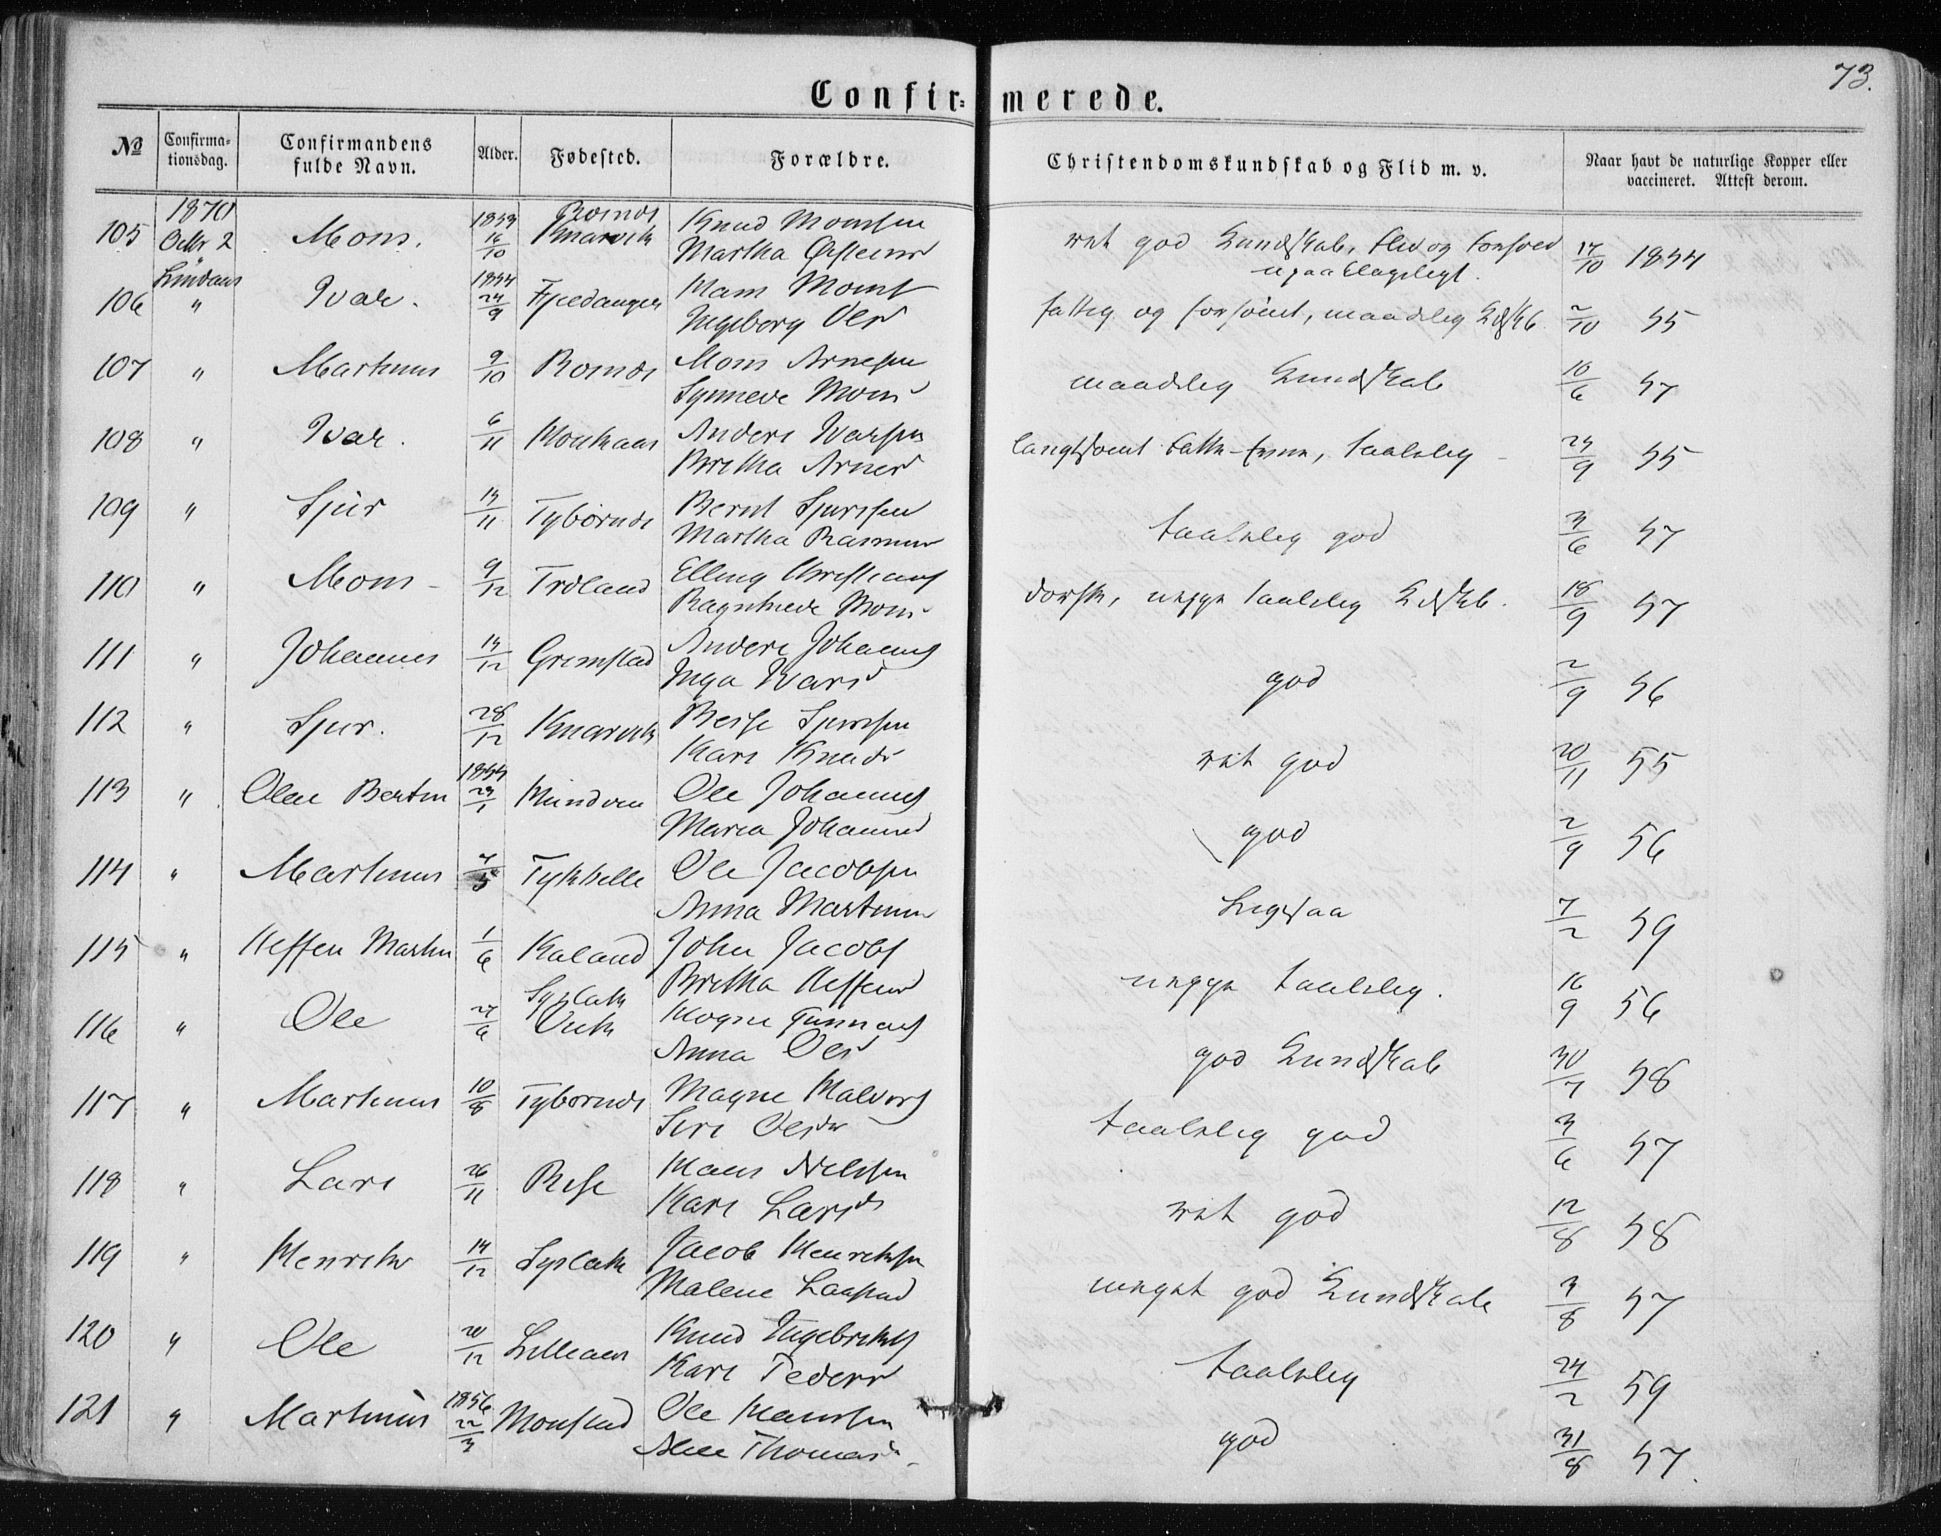 73.
Confir= merede.
No Confirma- tionsdag. Confirmandens fulde Navn. Alder. Fødested. Forældre. Christendomskundskab og Flid m. v. Naar havt de naturlige Kopper eller vaccineret. Attest derom.
105 1870 Octbr 2 Mons. 16/10 Knarvik Knud Monssen ret god Kundskab, Flid og Forhold 17/10 1854
Martha Østensd upaaklageligt.
106 Lindaas " Ivar. 1854 24/9 Fjeldanger Hans Monss fattig og forsømt, maadelig Kdskb. 2/10 55
Ingeborg Olsd
107 " Martinus 9/10 Mons Arnesen maadelig Kundskab 10/6 57
Synneve Monsd
108 " Ivar. 6/11 Anders Ivarsen langsom Fatte-Evne, taalelig 24/9 55
Britha Arnesd
109 " Sjur 13/11 Bernt Sjursen taalelig god 3/6 57
Martha Rasmusd
110 " Mons 9/12 Troland Elling Christians dorsk, neppe taalelig Kdskb. 18/9 57
Ragnhilde Monsd
111 " Johannes 13/12 Grimstad Anders Johannes god 2/9 56
Inga Ivarsd
112 " Sjur. 28/12 Knarvik Sjursen ret god 20/11 55
Kari Knudsd
113 " Olai Bertin 29/1 Mundven Ole Johannes god 2/9 56
Maria Johannesd
114 " Martinus 7/5 Ole Jacobsen Ligesaa 7/2 59
Anna Martinusd
115 " Steffen Martin 1/6 Kaland John Jacobs neppe taalelig. 16/9 56
Britha Steffensd
116 " Ole 27/6 Syslak Mogne Gunnars god Kundskab 30/7 58
Anna Olsd
117 " Martinus 10/8 Magne Halvors taalelig god 3/6 57
Siri Olsdr
118 " Lars 26/11 Risa Hans Nilssen ret god 12/8 58
Kari Larsd
119 " Henrik 14/12 Syslak Jacob Henriksen meget god Kundskab 3/8 57
Malene
120 " Ole 20/12 Lilleaas Knud Ingebrikts taalelig 24/2 59
Kari Pedersd
121 " Martinus 1856 22/3 Monstad Ole Hanssen god 31/8 57.
Thomasd